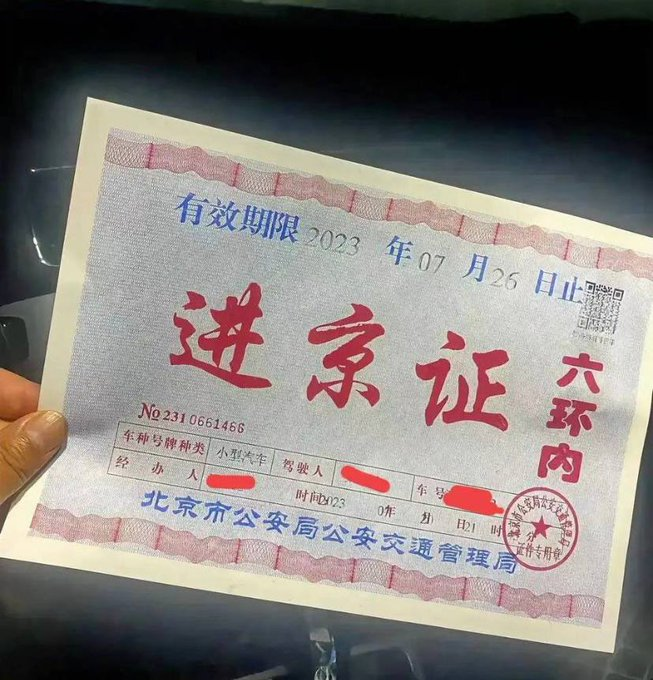 有效期限 2023 年 07 月 26 日止
进京证
六环内
No 231 0661466
车种号牌种类 小型汽车 驾驶人 车号
经办人 时间 2023 年 日 21 时 分
北京市公安局公安交通管理局
北京市公安局公安交通管理局
证件专用章